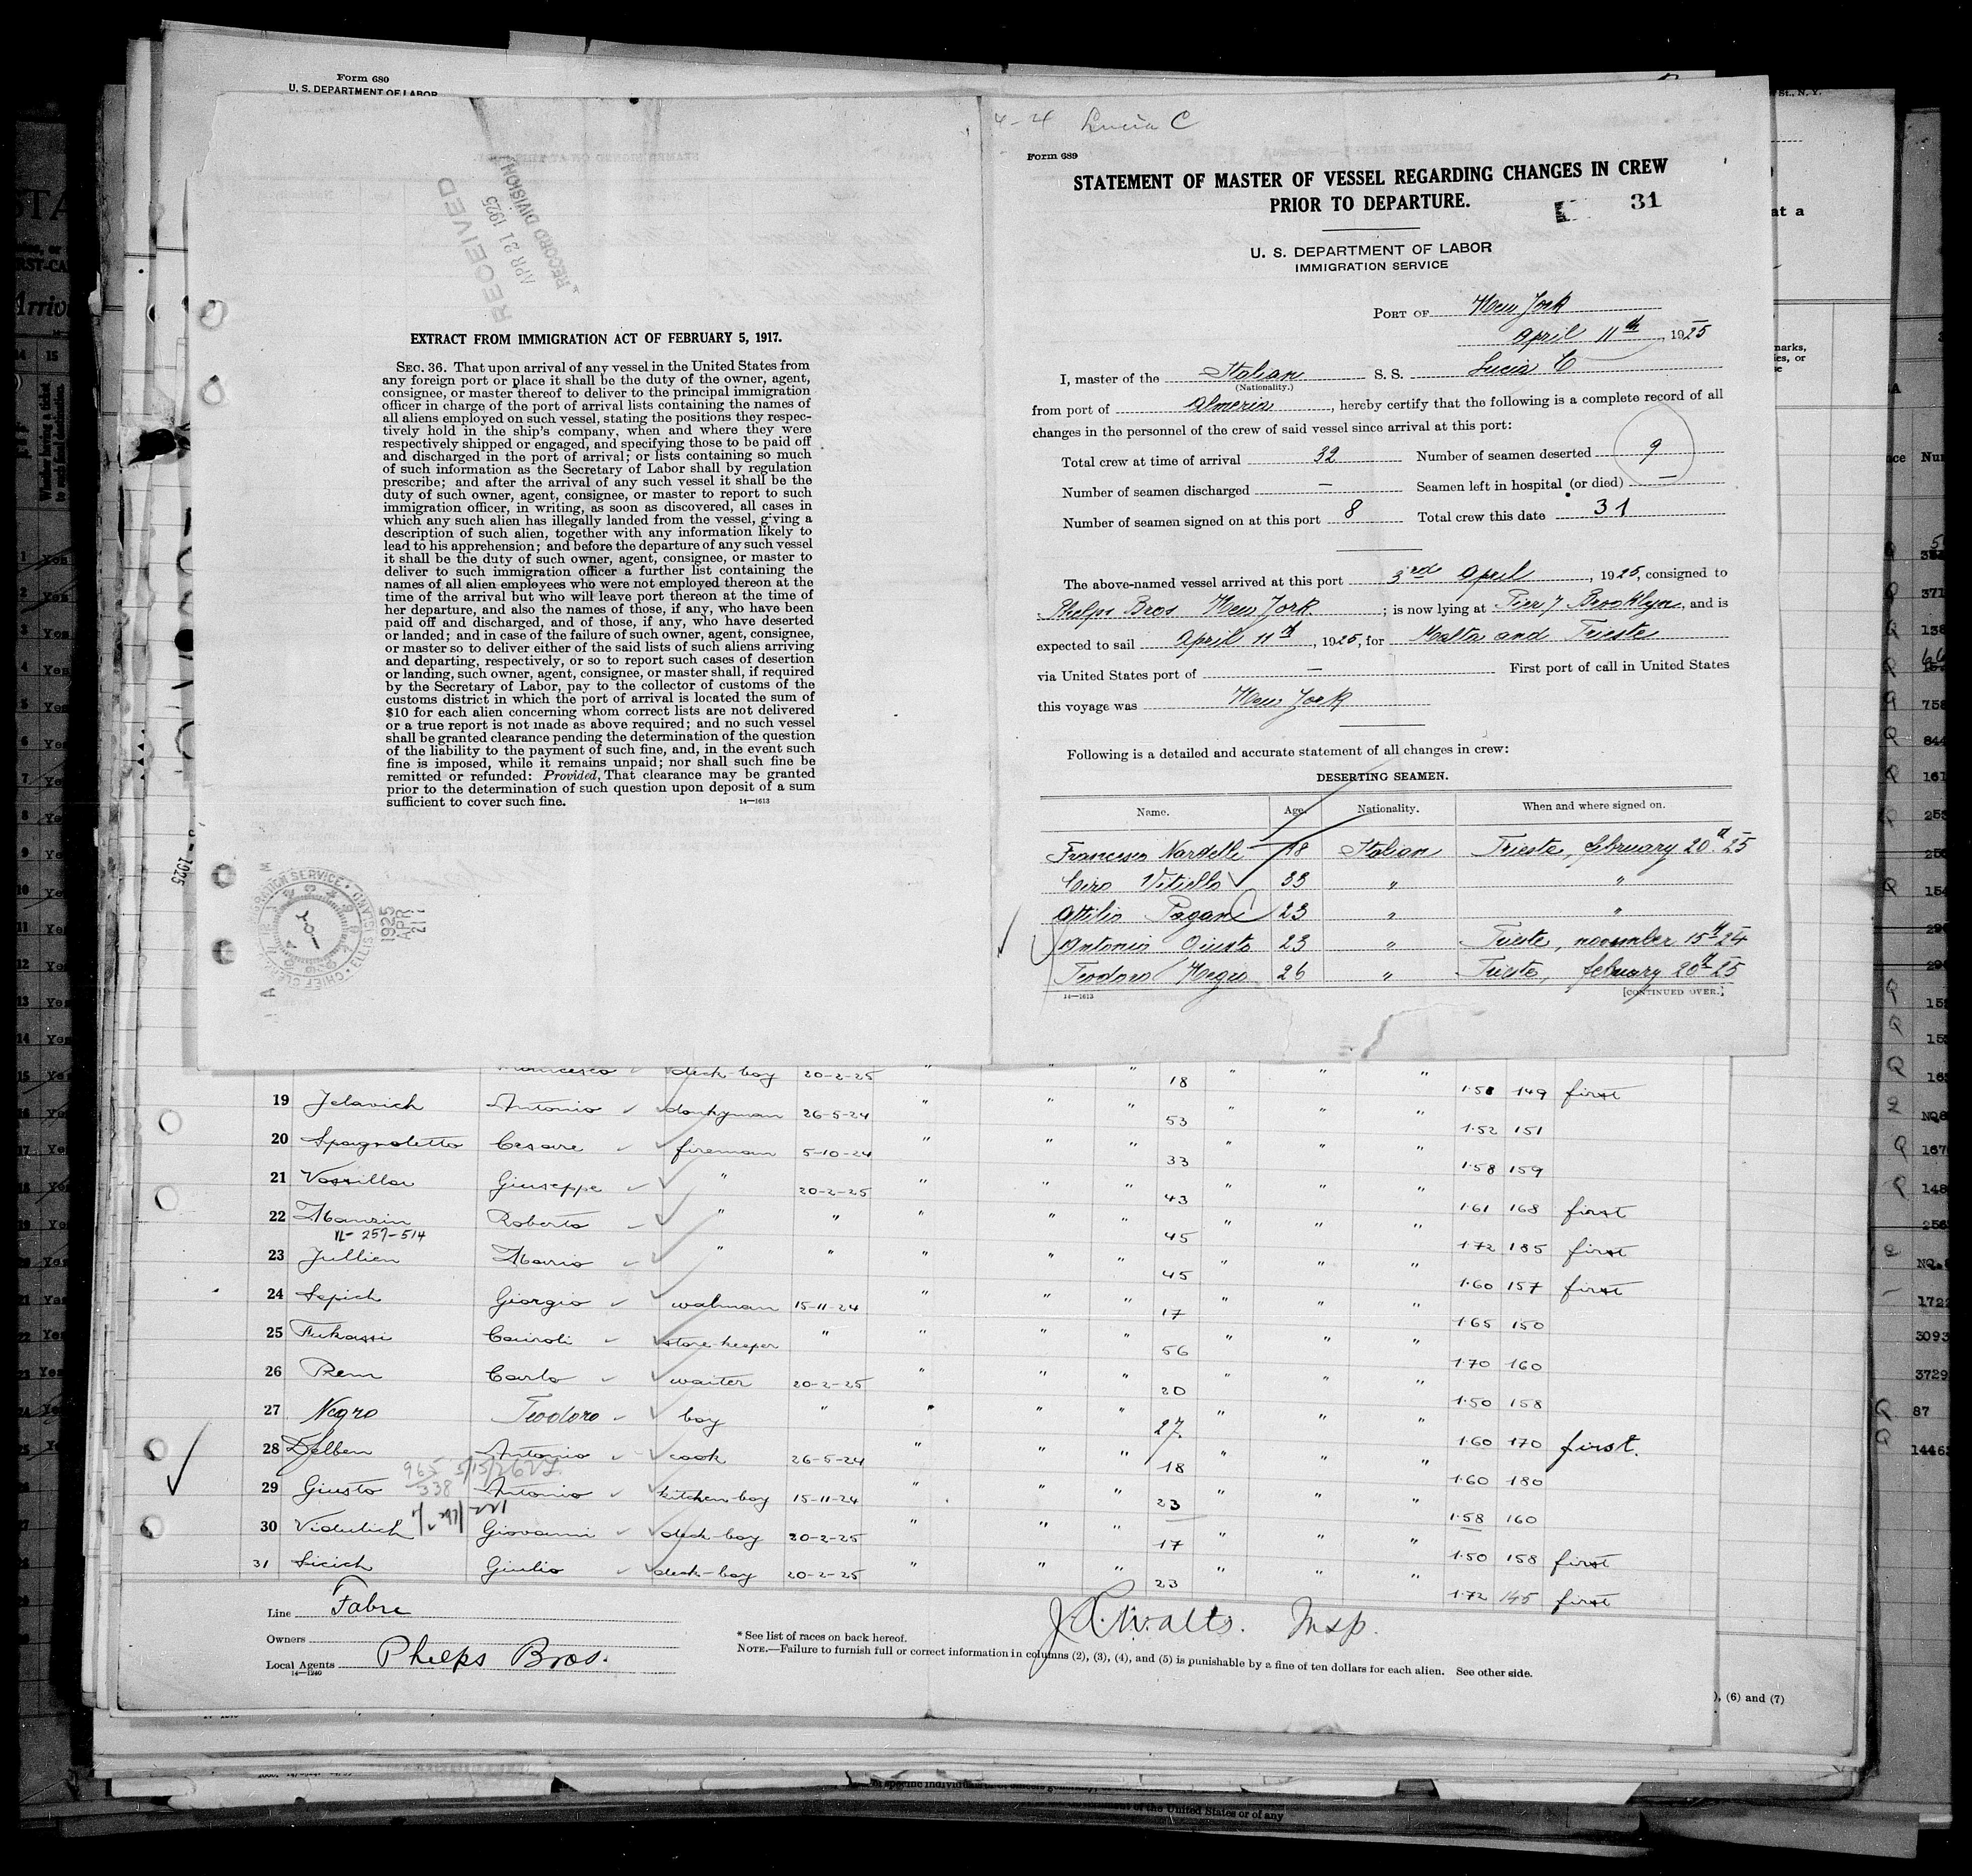 Form 680
U. S. DEPARTMENT OF LABOR
RECEIVED
APR 21 1925
RECORD DIVISION
EXTRACT FROM IMMIGRATION ACT OF FEBRUARY 5, 1917.
SEC. 36. That upon arrival of any vessel in the United States from
any foreign port or place it shall be the duty of the owner, agent,
consignee, or master thereof to deliver to the principal immigration
officer in charge of the port of arrival lists containing the names of
all aliens employed on such vessel, stating the positions they respec-
tively hold in the ship's company, when and where they were
respectively shipped or engaged, and specifying those to be paid off
and discharged in the port of arrival; or lists containing so much
of such information as the Secretary of Labor shall by regulation
prescribe; and after the arrival of any such vessel it shall be the
duty of such owner, agent, consignee, or master to report to such
immigration officer, in writing, as soon as discovered, all cases in
which any such alien has illegally landed from the vessel, giving a
description of such alien, together with any information likely to
lead to his apprehension; and before the departure of any such vessel
it shall be the duty of such owner, agent, consignee, or master to
deliver to such immigration officer a further list containing the
names of all alien employees who were not employed thereon at the
time of the arrival but who will leave port thereon at the time of
her departure, and also the names of those, if any, who have been
paid off and discharged, and of those, if any, who have deserted
or landed; and in case of the failure of such owner, agent, consignee,
or master so to deliver either of the said lists of such aliens arriving
and departing, respectively, or so to report such cases of desertion
or landing, such owner, agent, consignee, or master shall, if required
by the Secretary of Labor, pay to the collector of customs of the
customs district in which the port of arrival is located the sum of
$10 for each alien concerning whom correct lists are not delivered
or a true report is not made as above required; and no such vessel
shall be granted clearance pending the determination of the question
of the liability to the payment of such fine, and, in the event such
fine is imposed, while it remains unpaid; nor shall such fine be
remitted or refunded: Provided, That clearance may be granted
prior to the determination of such question upon deposit of a sum
sufficient to cover such fine. 14—1613
4-4 Lucia C
Form 689
STATEMENT OF MASTER OF VESSEL REGARDING CHANGES IN CREW
PRIOR TO DEPARTURE.
31
U. S. DEPARTMENT OF LABOR
IMMIGRATION SERVICE
PORT OF New York
April 11th, 1925
I, master of the Italian S. S. Lucia C
(Nationality.)
from port of Almeria, hereby certify that the following is a complete record of all
changes in the personnel of the crew of said vessel since arrival at this port:
Total crew at time of arrival 32 Number of seamen deserted 9
Number of seamen discharged — Seamen left in hospital (or died) —
Number of seamen signed on at this port 8 Total crew this date 31
The above-named vessel arrived at this port 3rd April, 1925, consigned to
Phelps Bros New York; is now lying at Pier 7 Brooklyn, and is
expected to sail April 11th, 1925, for Malta and Trieste
via United States port of — First port of call in United States
this voyage was New York
Following is a detailed and accurate statement of all changes in crew:
DESERTING SEAMEN.
Name. Age. Nationality. When and where signed on.
Francesco Nardelli 18 Italian Trieste, february 20th 25
Ciro Vitiello 33 " "
Attilio Pagan 23 " "
Antonio Giusto 23 " Trieste, november 15th 24
Teodoro Negro 26 " Trieste, february 20th 25
14—1613 [CONTINUED OVER.]
Francesco deck-boy 20-2-25 " " " 18 " " " 1.58 149 first
19 Jelavich Antonio donkyman 26-5-24 " " " 53 " " " 1.52 151
20 Spagnoletto Cesare fireman 5-10-24 " " " 33 " " " 1.58 159
21 Vassilla Giuseppe " 20-2-25 " " " 43 " " " 1.61 168 first
22 Manzin Roberto " " " " " 45 " " " 1.72 185 first
IL-257-514
23 Jullien Mario " " " " " 45 " " " 1.60 157 first
24 Sepich Giorgio 15-11-24 " " " 17 " " " 1.65 150
25 Cairoli store-keeper " " " " 56 " " " 1.70 160
26 Rem Carlo waiter 20-2-25 " " " 20 " " " 1.50 158
27 Negro Teodoro boy " " " " 27 " " " 1.60 170 first.
28 Delben Antonio cook 26-5-24 " " " 18 " " " 1.60 180
29 Giusto Antonio kitchen-boy 15-11-24 " " " 23 " " " 1.58 160
30 Vidulich Giovanni deck-boy 20-2-25 " " " 17 " " " 1.50 158 first
31 Sicich Giulio deck-boy 20-2-25 " " " 23 " " " 1.72 145 first
Line Fabre
Owners
Local Agents Phelps Bros.
14—1240
* See list of races on back hereof.
NOTE.—Failure to furnish full or correct information in columns (2), (3), (4), and (5) is punishable by a fine of ten dollars for each alien. See other side.
Insp.
), (6) and (7)